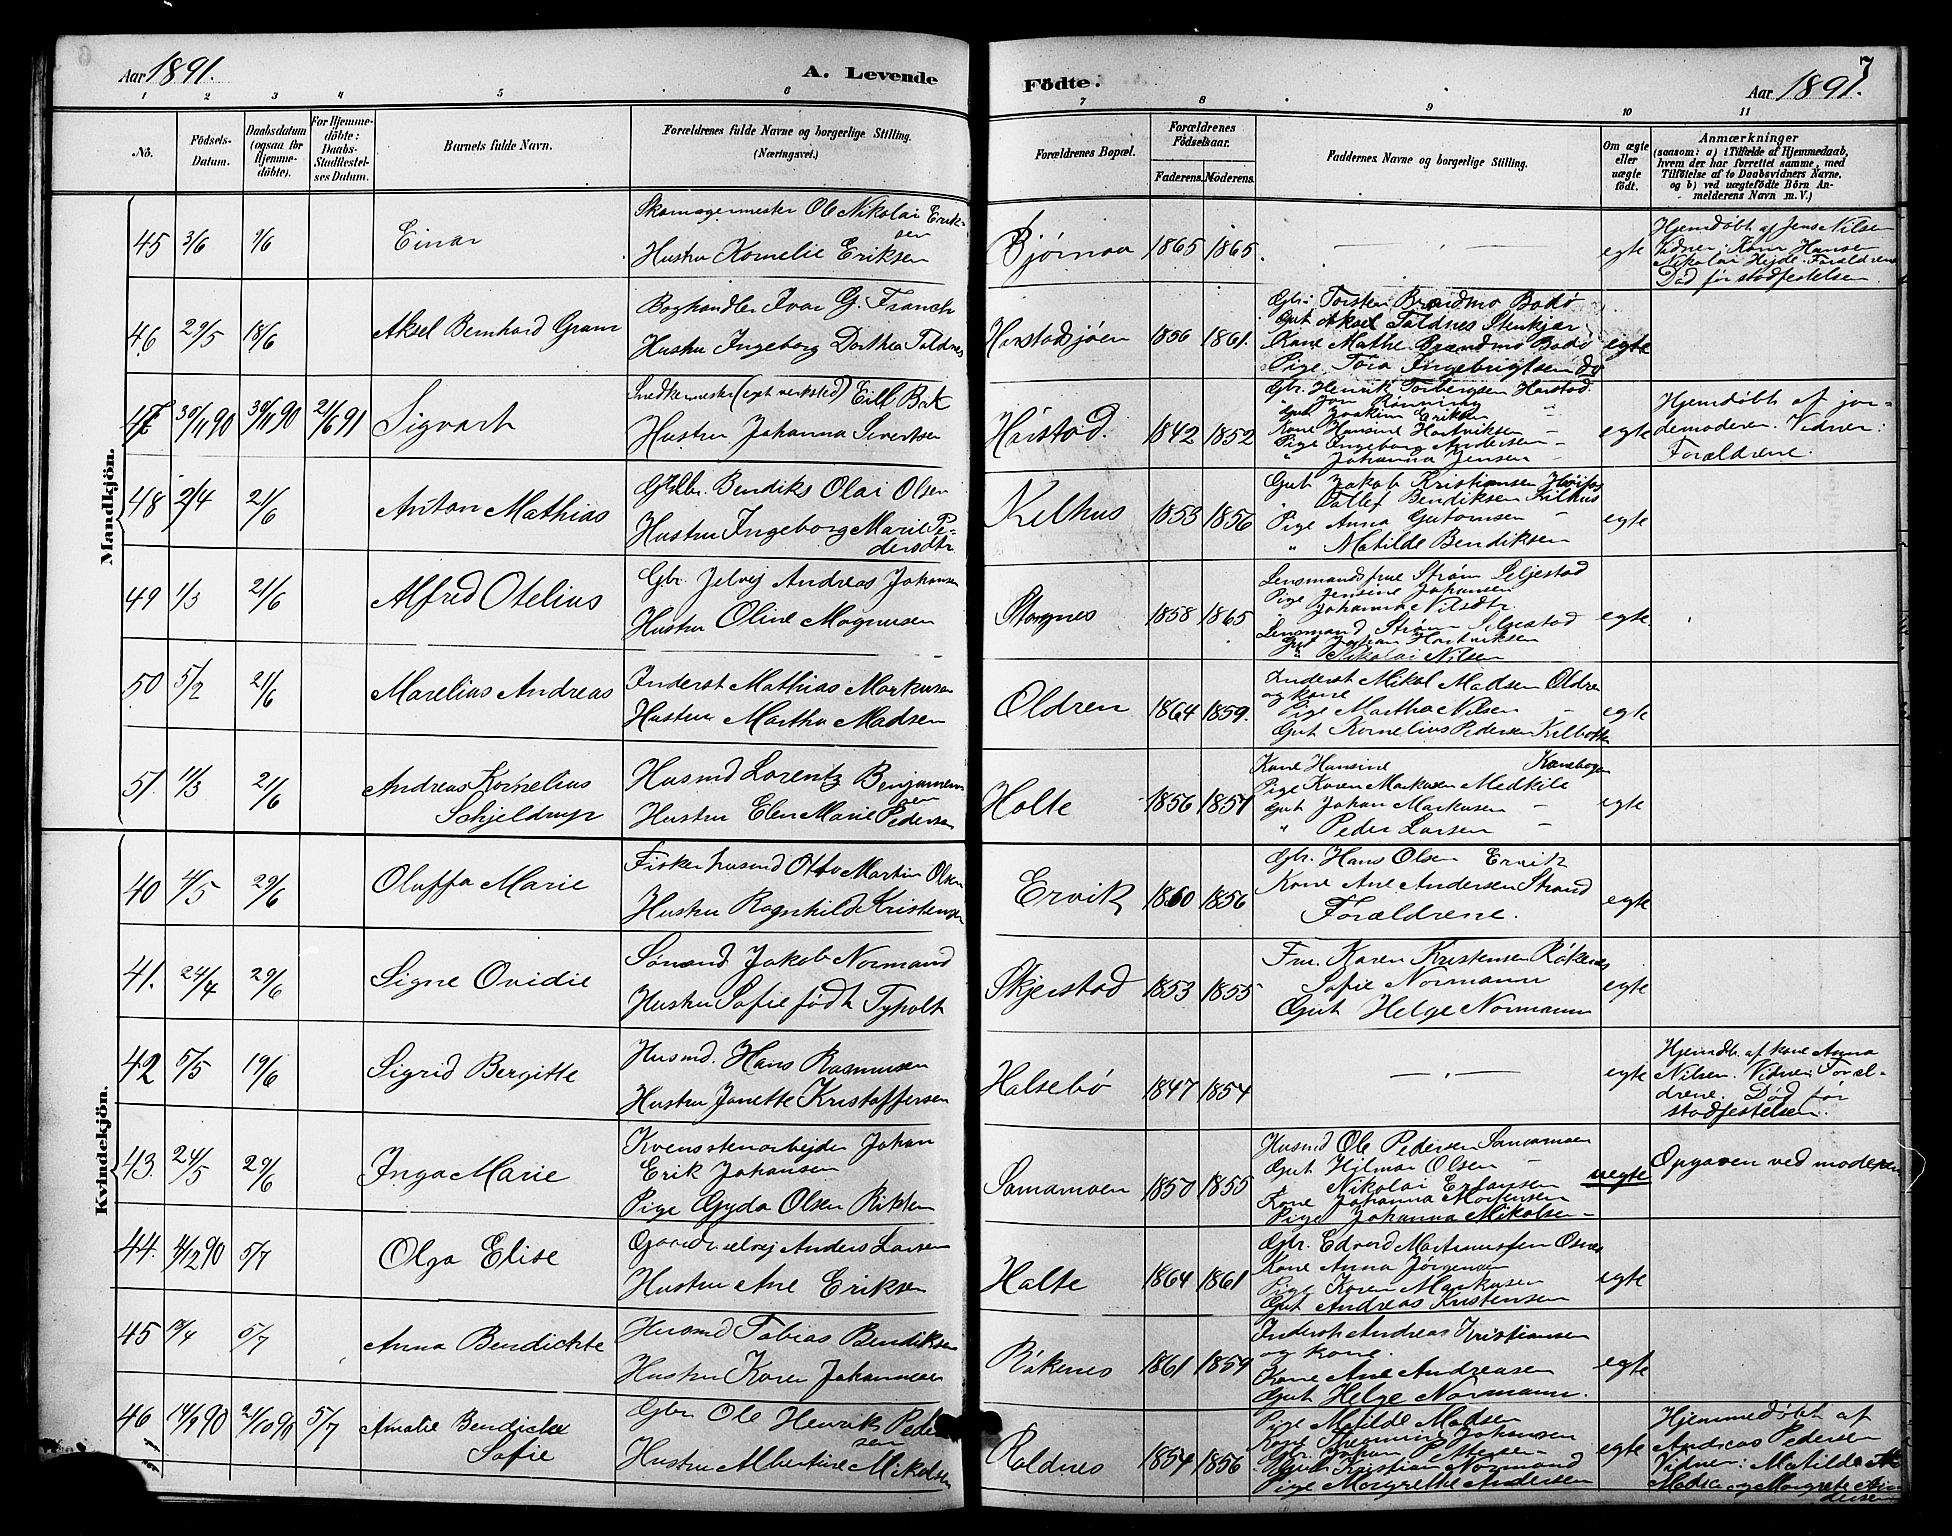 Aar 1891.
A. Levende
Födte.
7
Aar 1891.
1 2 3 4 5 6 7 8 9 10 11
No.
Födsels-
Datum.
Daabsdatum
(ogsaa for
Hjemme-
döbte).
For Hjemme-
döbte:
Daabs-
Stadfæstel-
ses Datum.
Barnets fulde Navn.
Forældrenes fulde Navne og borgerlige Stilling.
(Næringsvei.)
Forældrenes Bopæl.
Forældrenes
Födselsaar.
Faderens. Moderens.
Faddernes Navne og borgerlige Stilling.
Om ægte
eller
uægte
födt.
Anmærkninger
(saasom: a) i Tilfælde af Hjemmedaab,
hvem der har forrettet samme, med
Tilföielse af to Daabsvidners Navne.
og b) ved uægtefödte Börn An-
melderens Navn m. V.)
Mandkjön.
45 3/6 7/6
Einar
Skomagermester Ole Nikolai Erik-
sen
Hustru Kornelie Eriksen
Bjørnaa 1865 1865.
egte
Hjemdøbt af Jens Nilsen
Vidner: Kone Hansen
Nikolai Hejde. Forældrene
Død før stadfestelsen
46 29/5 18/6
Aksel Bernhard Gram
Boghandler Ivar G. Franck
Hustru Ingeborg Dorthea Foldnes
Harstadsjøen 1856 1861.
Gbr. Torsten Brandmo Bodø
Gut Aksel Foldnes Stenkjær
Kone Mathe Brandmo Bodø
Pige Tora Ingebrigtsen do
egte
47 30/11 90 30/11 90 21/6 91
Sigvart
Snedkermester (eget verksted) Eill Bak
Hustru Johanna Sivertsen
Harstad. 1842 1852
Gbr. Henrik Torbergsen Harstad
" Jon Rønning "
Gut Joakim Eriksen
Kone Hansine Hartviksen -
Pige Ingeborg Andersen -
" Johanna Jensen -
egte
Hjemdøbt af jor-
demoderen. Vidner:
Forældrene.
48 2/4 21/6
Anton Mathias
Gbr. Bendiks Olai Olsen
Hustru Ingeborg Marie Pe-
dersdtr
Kelhus 1853 1856
Gut Jakob Kristiansen
" Bendiksen Kilhus
Pige Anna Gutormsen -
" Matilde Bendiksen
egte
49 1/3 21/6
Alfred Otelius
Gbr. Selvej Andreas Johansen
Hustru Oline Magnusen
Stangnes 1858 1865
Lensmandsfrue Strøm Seljestad
Pige Jensine Johansen
Johanna Nilsdtr.
Lensmand Strøm Seljestad
Gut Johan Hartviksen
" Nikolai Nilsen
egte
50 5/2 21/6
Marelius Andreas
Inderst Mathias Markusen
Hustru Martha Madsen
Oldren 1864 1859.
Inderst Mikal Madsen Oldren
og kone
Pige Martha Nilsen -
Gut Kornelius Pedersen Kilbotten
egte
51. 11/3 21/6
Andreas Kornelius
Schjeldrup
Husmd Lorentz Benjamin-
sen
Hustru Elen Marie Pedersen
Holte 1856 1857
Kone Hansine Kanebogen
Pige Karen Markusen Medkile
Gut Johan Markusen -
" Peder Larsen -
egte
Kvindekjön.
40 4/5 29/6
Oluffa Marie
Fisker husmd Otto Martin Olsen
Hustru Ragnhilde Kristensen
Ervik 1860 1856
Gbr. Hans Olsen Ervik
Kone Ane Andersen Strand
Forældrene.
egte
41. 24/4 29/6
Signe Ovidie
Jakob Normand
Hustru Sofie født Tyholt
Skjerstad 1853 1855
Fru. Karen Kristensen Røkenes
Sofie Normann
Gut Helge Normann
egte
42 5/5 19/6
Sigrid Bergitte
Husmd. Hans Rasmusen
Hustru Janette Kristoffersen
Halsebø 1847 1854
egte
Hjemdb. af kone Anna
Nilsen. Vidner: Foræl-
drene. Død før
stadfestelsen.
43. 24/5 29/6
Inga Marie
Kvensstenarbejder Johan
Erik Johansen
Pige Gyda Olsen Rikten
Samamoen 1850 1855
Husmd Ole Pedersen Samamoen
Gut Hilmar Olsen -
" Nikolai Erlansen
Kone Johanna Mortensen
Pige Johanna Mikalsen -
uegte
Opgaven ved moderen
44. 4/12 90 5/7
Olga Elise
Gaard selvej Anders Larsen
Hustru Ane Eriksen
Halte 1864 1861
Gbr. Edvard Martinussen Osnes
Kone Anna Jørgensen
Pige Karen Markusen
Gut Andreas Kristensen
egte
45 9/4 5/7
Anna Bendickte
Husmd Tobias Bendiksen
Hustru Karen Johannesen
Røkenes 1861 1859
Inderst Andreas Kristiansen
og kone.
Kone Ane Andreasen
Gut Helge Normann.
egte
46 14/9 90 24/10 90 5/7
Amalie Bendickte
Sofie
Gbr Ole Henrik Peder-
sen
Hustru Albertine Mikalsen
Roldnes 1854 1856
Pige Matilde Madsen
Kone Johansen
Gbr. Johan Pettersen -
Gut Kristian Normand
Pige Margrethe Andersen
egte
Hjemmedøbt af
Andreas Pedersen
Vidner: Matilde
Madsen og Margrete An-
dersen